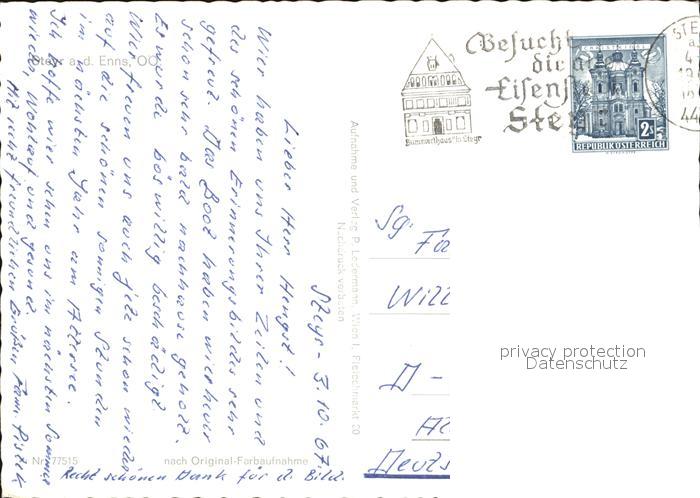 Steyr a. d. Enns, OÖ
Steyr - 3. 10. 67
Lieber Herr Hengst!
Wier haben uns Ihrer Zeilen und
des schönen Erinnerungsbildes sehr
gefreut. Das Boot haben wier heuer
schon sehr bald nachhause geholt.
Es wurde böswillig beschädigt
Wier freuen uns auch jetz schon wieder
auf die schönen sonnigen Stunden
im nächsten Jahr am Attersee.
Ich hoffe wier sehen uns im nächsten Sommer
wieder, Wohlauf und gesund.
Mit recht freundlichen Grüßen Fam.
Recht schönen Dank für d. Bild.
Nr. 77515
nach Original-Farbaufnahme
Aufnahme und Verlag P. Ledermann, Wien I, Fleischmarkt 20
Nachdruck verboten
Besucht
die alte
Eisens
Steyr
Bummerlhaus in Steyr
CHRISTKINDL
2
REPUBLIK ÖSTERREICH
STE
44
Sg.
Fa
Will
D -
Deuts
privacy protection
Datenschutz